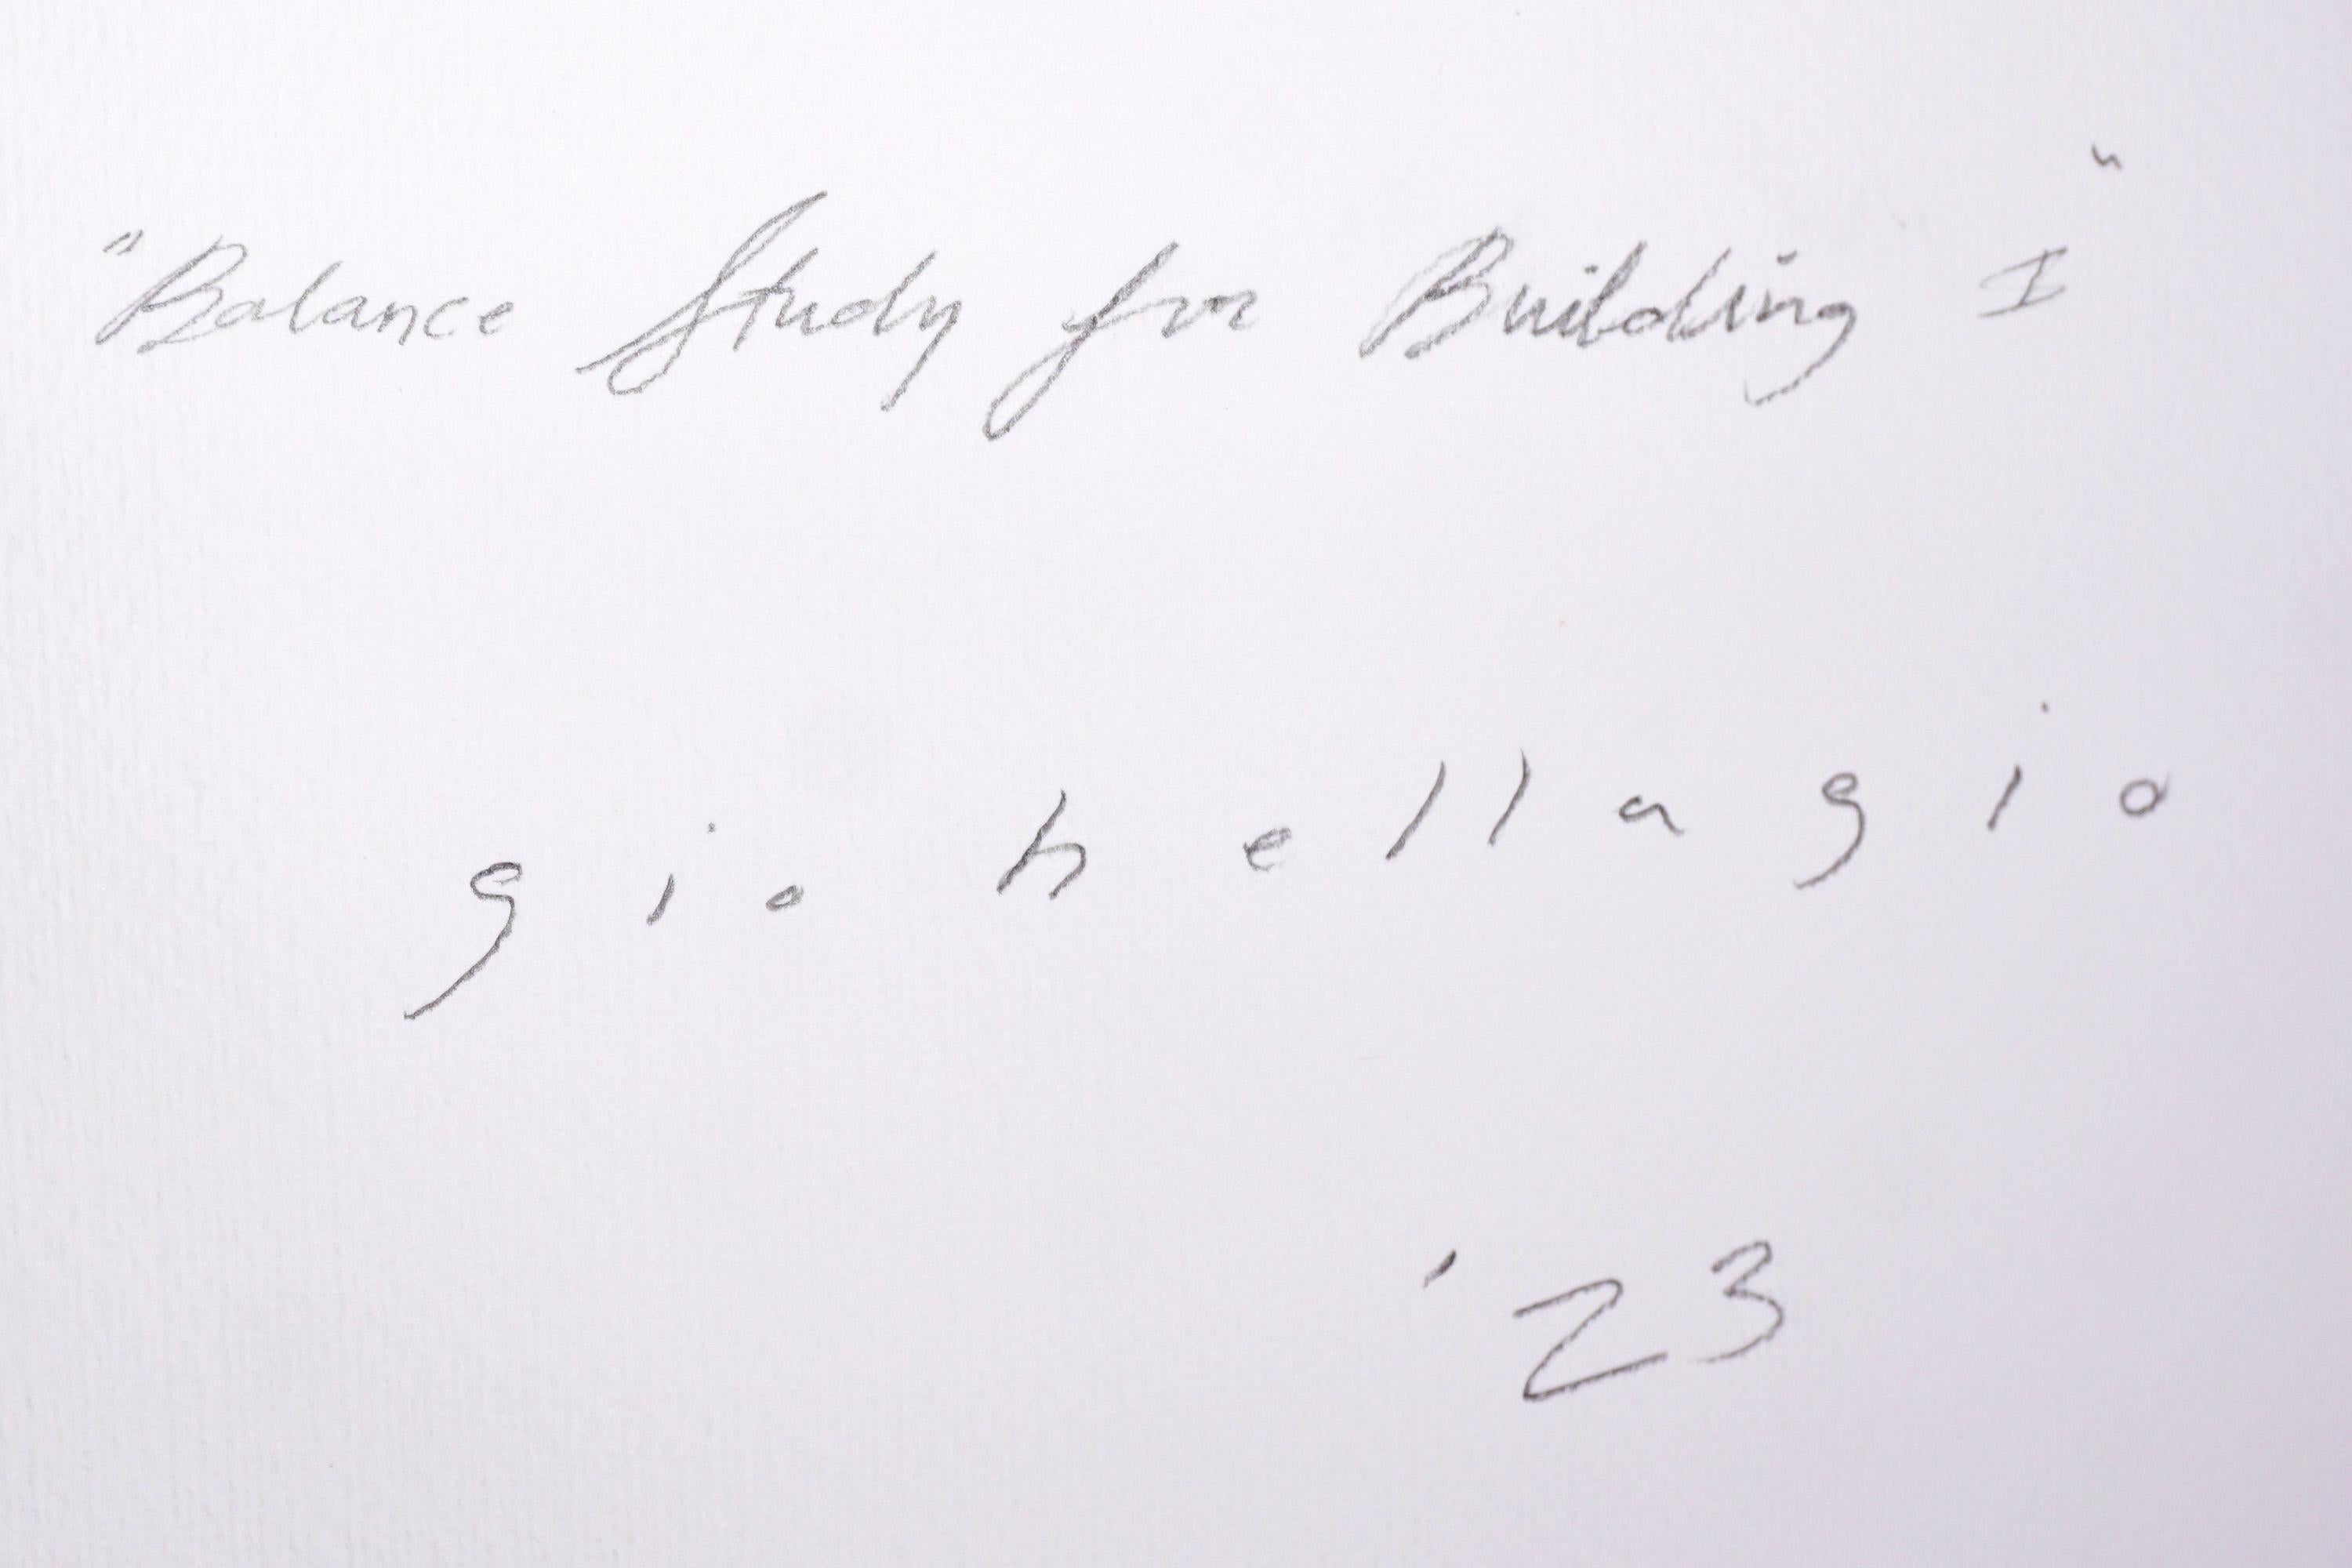 "Balance Study for Building I"
gio hellagio
'23